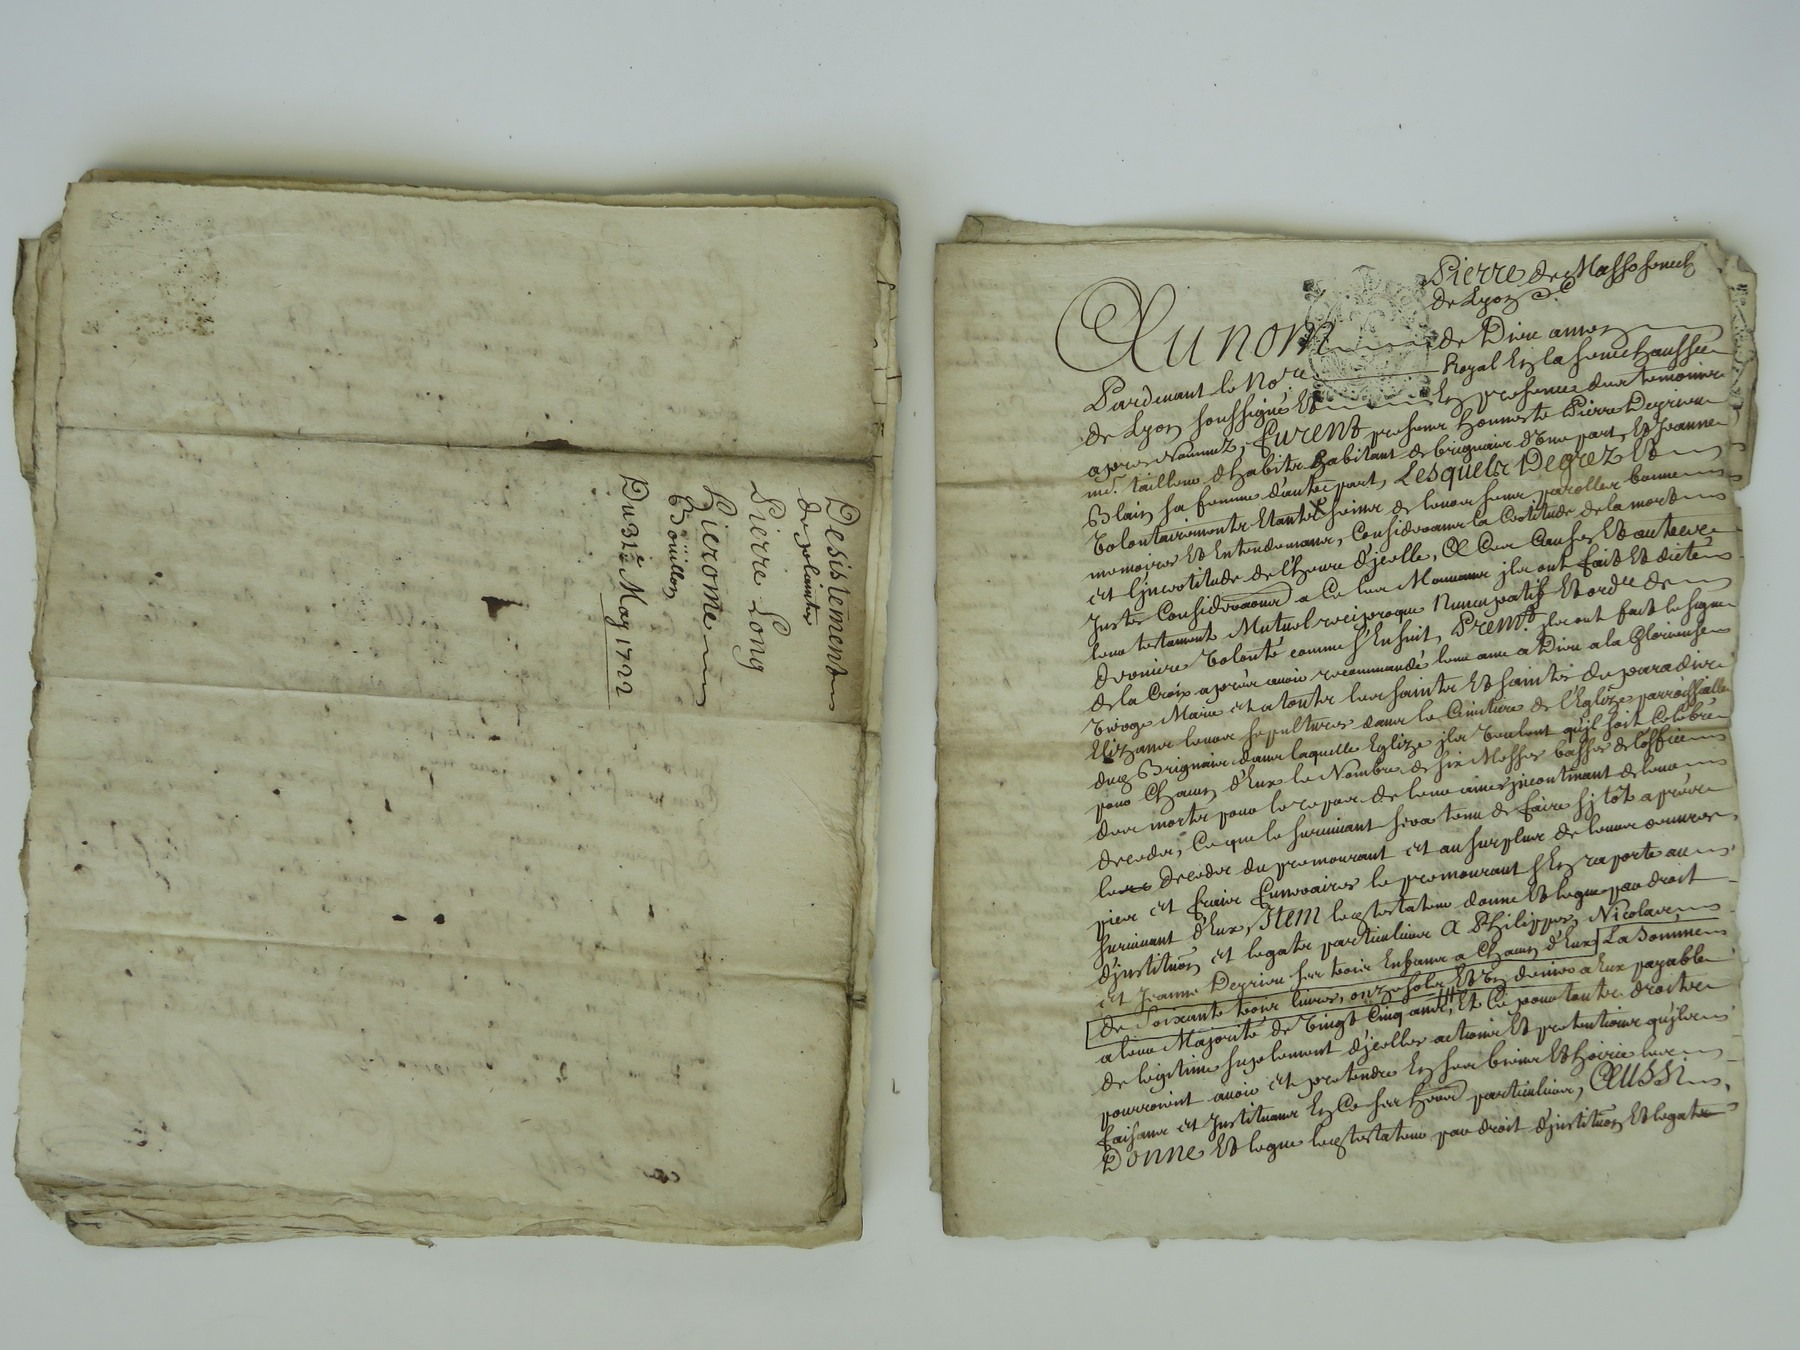 Desistement
de plaintes
Pierre Long
Hierome
Boüillon
Du 31e May 1722
Pierre de Masso senech
de Lyon &c
Au nom de Dieu amen
Pardevant le Nore Royal En la senechaussée
de Lyon soussigné Et En presence des temoins
apres Nommez, furent presens honneste Pierre Deprieu
me. tailleur d'habits habitant de brignais d'Une part, Et Jeanne
Blain sa femme d'autre part, Lesquels De grez Et
Volontairements Etants seins de leurs sens parolles bonne
memoires Et Entendemans, Considerans la Certitude de la mort
et l'jncertitude de l'heure d'jcelle, A Ces Causes Et autres
Justes Considerãons a Ce les Mouvans jls ont fait Et dicté
leur testament Mutuel reciproque Nuncupatif Et ordre de
derniere Volonté comme s'Ensuit, Premt. jls ont fait le signe
de la Croix apres avoir recommandé leur ame a Dieu a la Glorieuse
Vierge Marie et a toutes les saints Et saintes du paradis
Elizans leurs sepultures dans le Cimitiere de l'Eglize parroissialle
dud Brignais dans laquelle Eglize jls Veulent qu'jl soit Celebré
pour Chacun d'Eux le Nombre de six Messes basses de l'office
des morts pour le repos de leur ames jncontinant de leur
decedes, Ce que le survivant sera tenu de faire sj tôt apres
le decedes du premourant et au surplus de leurs oeuvres
pies et frais funeraires le premourant s'En raporte au
survivant d'Eux, Item led testateur donne Et legue par droit
d'jnstituõn et legats particulier A Philippes, Nicolas,
et Jeanne Deprieu ses trois Enfans a Chacun d'Eux La Somme
de Soixante trois livres, onze sols, Et Un deniers a Eux payable
a leur Majorité de Vingt Cinq ans, Et Ce pour toutes droits
de legitime suplement d'jcelles actions Et pretentions qu'jls
pourroient avoir et pretendre En ses biens Et hoirie les
faisant et Jnstituans En Ce ses hers particuliers, AUSSI
Donne Et legue led testateur par droit d'jnstituõn Et legats